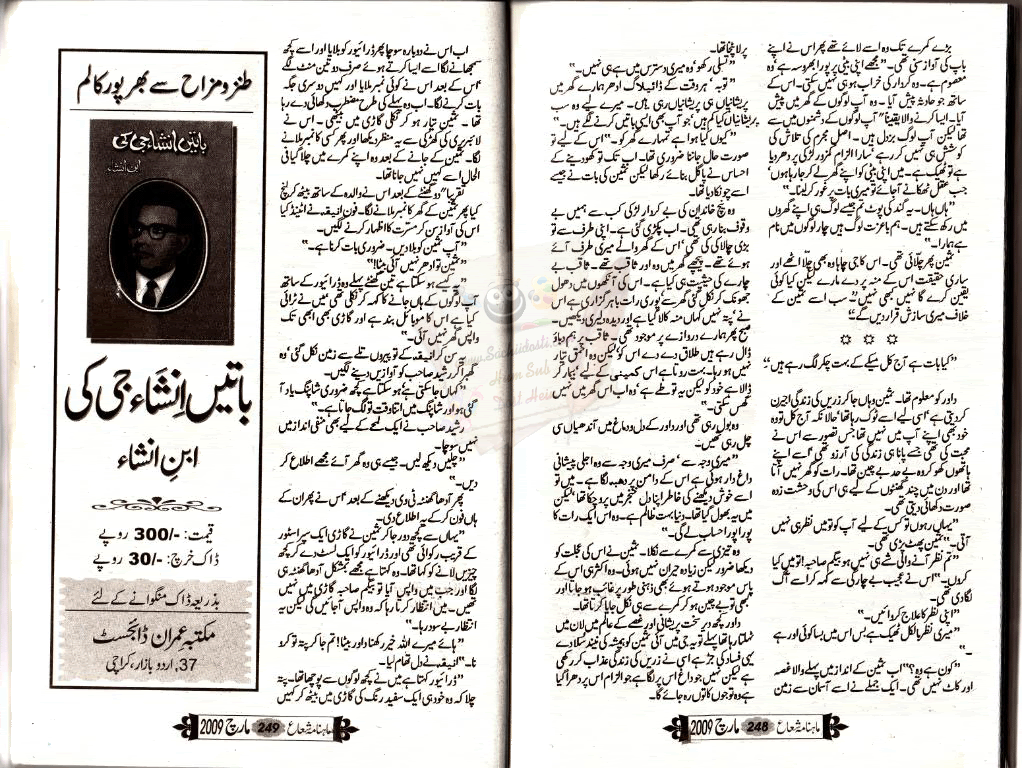 بڑے کمرے تک وہ اسے لائے تھے پھر اس نے اپنے
باپ کی آواز سنی تھی۔ "مجھے اپنی بیٹی پر پورا بھروسہ ہے وہ
معصوم ہے۔ وہ کردار کی خراب ہو ہی نہیں سکتی۔ اس کے
ساتھ جو حادثہ پیش آیا۔ وہ آپ لوگوں کے گھر میں پیش
آیا۔ ایسا کرنے والا یقیناً" آپ لوگوں کے دشمنوں میں سے
تھا لیکن آپ لوگ بزدل ہیں۔ اصل مجرم کی تلاش کی
کوشش ہی نہیں کر رہے سارا الزام کمزور لڑکی پر دھر دیا
ہے تو ٹھیک ہے۔ میں اپنی بیٹی کو اپنے گھر لے جا رہا ہوں'
جب عقل ٹھکانے آجائے تو میری بات پر غور کر لینا۔"
"ہاں ہاں۔ یہ گند کی پوٹ تم جیسے لوگ ہی اپنے گھروں
میں رکھ سکتے ہیں۔ ہم باعزت لوگ ہیں چار لوگوں میں نام
ہے ہمارا۔"
ثمین پھر چلائی تھی۔ اس کا جی چاہا وہ بھی چلا اٹھے اور
ساری حقیقت اس کے منہ پر دے مارے لیکن کیا کوئی
یقین کرے گا نہیں بھی نہیں' سب اسے ثمین کے
خلاف میری سازش قرار دیں گے"
"کیا بات ہے آج کل میکے کے بہت چکر لگ رہے ہیں"
داور کو معلوم تھا۔ ثمین وہاں جا کر زریں کی زندگی اجیرن
کر دیتی ہے' اسی لیے اسے ٹوک رہا تھا' حالانکہ آج کل تو وہ
خود بھی اپنے آپ میں نہیں تھا جس تصور سے اس نے
محبت کی تھی جسے پانا ہی زندگی کی آرزو تھی' اسے اپنے
ہاتھوں کھو کر وہ بے حد بے چین تھا۔ رات کو گھر نہیں آتا
تھا اور دن میں چند گھنٹوں کے لیے ہی اس کی وحشت زدہ
صورت دکھائی دیتی تھی۔
"یہاں رہوں تو کس کے لیے آپ کو تو میں نظر ہی نہیں
آتی۔" ثمین پھٹ پڑی تھی۔
"تم نظر آنے والی شے ہی نہیں ہو بیگم صاحبہ! تو میں کیا
کروں۔" اس نے عجیب بے چارگی سے کہہ کر اسے آگ
لگا دی تھی۔
"اپنی نظر کا علاج کروائیں۔"
"میری نظر بالکل ٹھیک ہے بس اس میں بسا کوئی اور ہے
۔"
"کون ہے وہ؟" اب ثمین کے انداز میں پہلے والا غصہ
اور کاٹ نہیں تھی۔ ایک جملے نے اسے آسمان سے زمین
پر لا پٹخا تھا۔
"تسلی رکھو' وہ میری دسترس میں ہے ہی نہیں۔"
"توبہ' ہر وقت کے ڈائیلاگ ادھر ہمارے گھر میں
پریشانیاں ہی پریشانیاں رہی ہیں۔ میرے لیے وہ سب
پریشانیاں کیا کم ہیں' جو آپ بھی ایسی باتیں کرنے لگے ہیں۔"
"کیوں کیا ہوا ہے تمہارے گھر کو۔" اس کے لیے تو
صورت حال جاننا ضروری تھا۔ اب تک تو کھو دینے کے
احساس نے پاگل بنائے رکھا لیکن ثمین کی بات نے جیسے
اسے چونکا دیا تھا۔
وہ نیچ خاندان کی بے کردار لڑکی کب سے ہمیں بے
وقوف بنا رہی تھی۔ اب پکڑی گئی ہے۔ اپنی طرف سے تو
بڑی چالاک بنی تھی' اس کے گھر والے میری طرف آئے
ہوئے تھے۔ پیچھے گھر میں وہ اور ثاقب تھے۔ ثاقب بے
چارے کی حیثیت ہی کیا ہے۔ اس کی آنکھوں میں دھول
جھونک کر نکل گئی گھر سے' پوری رات باہر گزاری ہے اس
نے' پتہ نہیں کہاں منہ کالا کیا ہے اور دیدہ دلیری دیکھیں۔
صبح پھر ہمارے دروازے پر موجود تھی۔ ثاقب پر ہم دباؤ
ڈال رہے ہیں طلاق دے دے اس کو' لیکن وہ احمق تیار
نہیں ہو رہا۔ بہت رویا ہے اس کمینی کے لیے' بیمار کر
ڈالا ہے خود کو لیکن یہ تو طے ہے' وہ اب اس گھر میں نہیں
گھس سکتی۔"
وہ بول رہی تھی اور داور کے دل و دماغ میں آندھیاں سی
چل رہی تھیں۔
"میری وجہ سے' صرف میری وجہ سے وہ اجلی پیشانی
داغ دار ہوئی ہے اس کے دامن پر دھبہ لگا ہے۔ میں تو
اسے خوش دیکھنے کی خاطر اپنا دل خنجر میں پرو چکا تھا' لیکن
میں یہ بھول گیا تھا۔ دنیا بہت ظالم ہے۔ وہ اس ایک رات کا
پورا پورا حساب لے گی۔"
وہ تیزی سے کمرے سے نکلا۔ ثمین نے اس کی عجلت کو
دیکھا ضرور لیکن زیادہ حیران نہیں ہوئی۔ وہ اکثر ہی اس کے
پاس موجود ہوتے ہوئے بھی ذہنی طور پر غائب ہو جاتا اور
کبھی تو بے چین ہو کر کمرے سے ہی نکل جایا کرتا تھا۔
داور کچھ دیر سخت پریشانی اور غصے کے عالم میں لان میں
ٹہلتا رہا تھا پہلے تو یہ جی میں آئی' ثمین کو ہمیشہ کی نیند سلا دے
یہی فساد کی جڑ ہے اسی نے زریں کی زندگی عذاب کر رکھی
ہے لیکن نہیں جو داغ اس پر لگا ہے جو الزام اس پر دھرا گیا
ہے وہ تو جوں کا توں رہ جائے گا۔
ماہنامہ شعاع 248 مارچ 2009
اب اس نے دوبارہ سوچا پھر ڈرائیور کو بلایا اور اسے کچھ
سمجھانے لگا اسے ایسا کرتے ہوئے صرف دو تین منٹ لگے
اس کے بعد اس نے کوئی نمبر ملایا اور کہیں دوسری جگہ
بات کرنے لگا۔ اب وہ پہلے کی طرح مضطرب دکھائی دے رہا
تھا۔ ثمین تیار ہو کر نکلی گاڑی میں بیٹھی۔ اس نے
لائبریری کی کھڑکی سے یہ منظر دیکھا اور پھر کسی کا نمبر ملانے
لگا۔ ثمین کے جانے کے بعد وہ اپنے کمرے میں چلا گیا فی
الحال اسے کہیں نہیں جانا تھا۔
تقریباً" دو گھنٹے کے بعد اس نے والدہ کے ساتھ بیٹھ کر لنچ
کیا پھر ثمین کے گھر کا نمبر ملانے لگا۔ فون انیقہ نے اٹینڈ کیا
اس کی آواز سن کر مسرت کا اظہار کرنے لگیں۔
"آپ ثمین کو بلا دیں۔ ضروری بات کرنا ہے۔"
"ثمین تو ادھر نہیں آئی بیٹا!"
"کیسے ہو سکتا ہے ثمین تین گھنٹے پہلے وہ ڈرائیور کے ساتھ
آپ لوگوں کے ہاں جانے کا کہہ کر نکلی تھی میں نے ٹرائی
کیا ہے اس کا موبائل بند ہے اور گاڑی بھی ابھی تک
واپس گھر نہیں آئی۔"
یہ سن کر انیقہ کے تو پیروں تلے سے زمین نکل گئی' وہ
گھبرا کر رشید صاحب کو آوازیں دینے لگیں۔
"کہاں جا سکتی ہے' ہو سکتا ہے کچھ ضروری شاپنگ یاد آ
گئی ہو اور شاپنگ میں اتنا وقت تو لگ جاتا ہے۔"
رشید صاحب نے ایک لمحے کے لیے بھی منفی انداز میں
نہیں سوچا۔
"چلیں دیکھ لیں۔ جیسے ہی وہ گھر آئے مجھے اطلاع کر
دیں۔"
پھر آدھا گھنٹہ ٹی وی دیکھنے کے بعد' اس نے پھر ان کے
ہاں فون کر کے یہ اطلاع دی۔
"یہاں سے کچھ دور جا کر ثمین نے گاڑی ایک سپر اسٹور
کے قریب رکوائی تھی اور ڈرائیور کو ایک لسٹ دے کر کچھ
چیزیں لانے کو کہا تھا۔ وہ کہتا ہے مجھے بمشکل آدھا گھنٹہ ہی
لگا اور جب میں واپس آیا تو بیگم صاحبہ گاڑی میں نہیں
تھیں۔ میں انتظار کرتا رہا کہ وہ واپس آجائیں گی لیکن یہ
انتظار بے سود رہا۔"
"ہائے میرے اللہ خیر رکھنا داور بیٹا! تم جا کر پتہ تو کرو
نا۔" انیقہ نے دل تھام لیا۔
"ڈرائیور کہتا ہے میں نے کچھ لوگوں سے پوچھا تھا۔ پتہ
چلا کہ وہ خود ہی ایک سفید رنگ کی گاڑی میں بیٹھ کر کہیں
ماہنامہ شعاع 249 مارچ 2009
طنز و مزاح سے بھرپور کالم
باتیں انشاء جی کی
ابن انشاء
باتیں اِنشاء جی کی
ابنِ انشاء
قیمت: -/300 روپے
ڈاک خرچ: -/30 روپے
بذریعہ ڈاک منگوانے کے لئے
مکتبہ عمران ڈائجسٹ
37, اردو بازار، کراچی